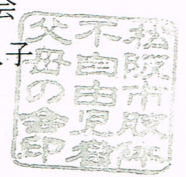 会
子
松阪市肢体
不自由児者
父母の会印